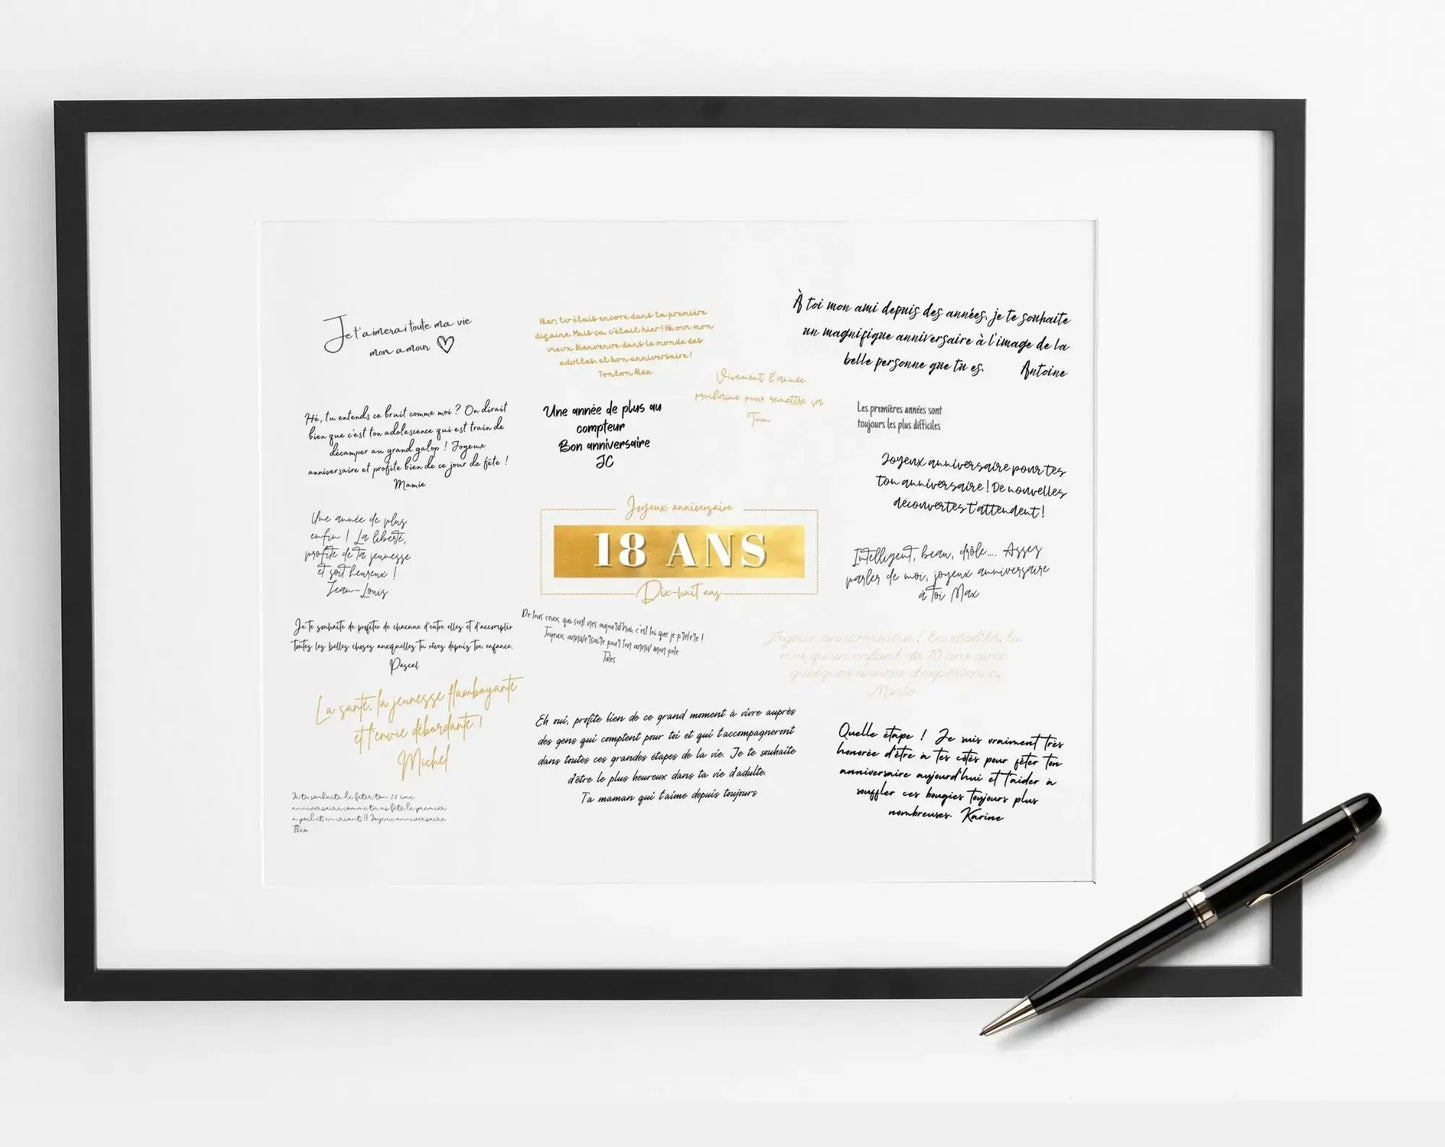 Je t'aimerai toute ma vie
mon amour
Hier, tu étais encore dans ta première
dizaine. Mais ça, c'était hier ! Hé oui mon
vieux. Bienvenue dans le monde des
adultes, et bon anniversaire !
Tonton Max
À toi mon ami depuis des années, je te souhaite
un magnifique anniversaire à l'image de la
belle personne que tu es. Antoine
Vivement l'année
prochaine pour remettre ça
Tom
Hé, tu entends ce bruit comme moi ? On dirait
bien que c'est ton adolescence qui est train de
décamper au grand galop ! Joyeux
anniversaire et profite bien de ce jour de fête !
Mamie
Une année de plus au
compteur
Bon anniversaire
JC
Les premières années sont
toujours les plus difficiles
Joyeux anniversaire pour tes
ton anniversaire ! De nouvelles
découvertes t'attendent !
Une année de plus
enfin ! La liberté,
profite de ta jeunesse
et soit heureux !
Jean-Louis
Joyeux anniversaire
18 ANS
Dix-huit ans
Intelligent, beau, drôle.... Assez
parler de moi, joyeux anniversaire
à toi Max
Je te souhaite de profiter de chacune d'entre elles et d'accomplir
toutes les belles choses auxquelles tu rêves depuis ton enfance.
Pascal
De tous ceux qui sont nés aujourd'hui, c'est toi que je préfère !
Joyeux anniversaire pour ton anniv mon pote
Jules
Joyeux anniversaire ! En réalité, tu
n'es qu'un enfant de 10 ans avec
quelques années d'expérience.
Marie
La santé, la jeunesse flamboyante
et l'envie débordante !
Michel
Eh oui, profite bien de ce grand moment à vivre auprès
des gens qui comptent pour toi et qui t'accompagneront
dans toutes ces grandes étapes de la vie. Je te souhaite
d'être le plus heureux dans ta vie d'adulte.
Ta maman qui t'aime depuis toujours
Quelle étape ! Je suis vraiment très
honorée d'être à tes côtés pour fêter ton
anniversaire aujourd'hui et t'aider à
souffler ces bougies toujours plus
nombreuses. Karine
Je te souhaite de fêter ton ème
anniversaire comme tu as fêté le premier
à poil et en criant !! Joyeux anniversaire